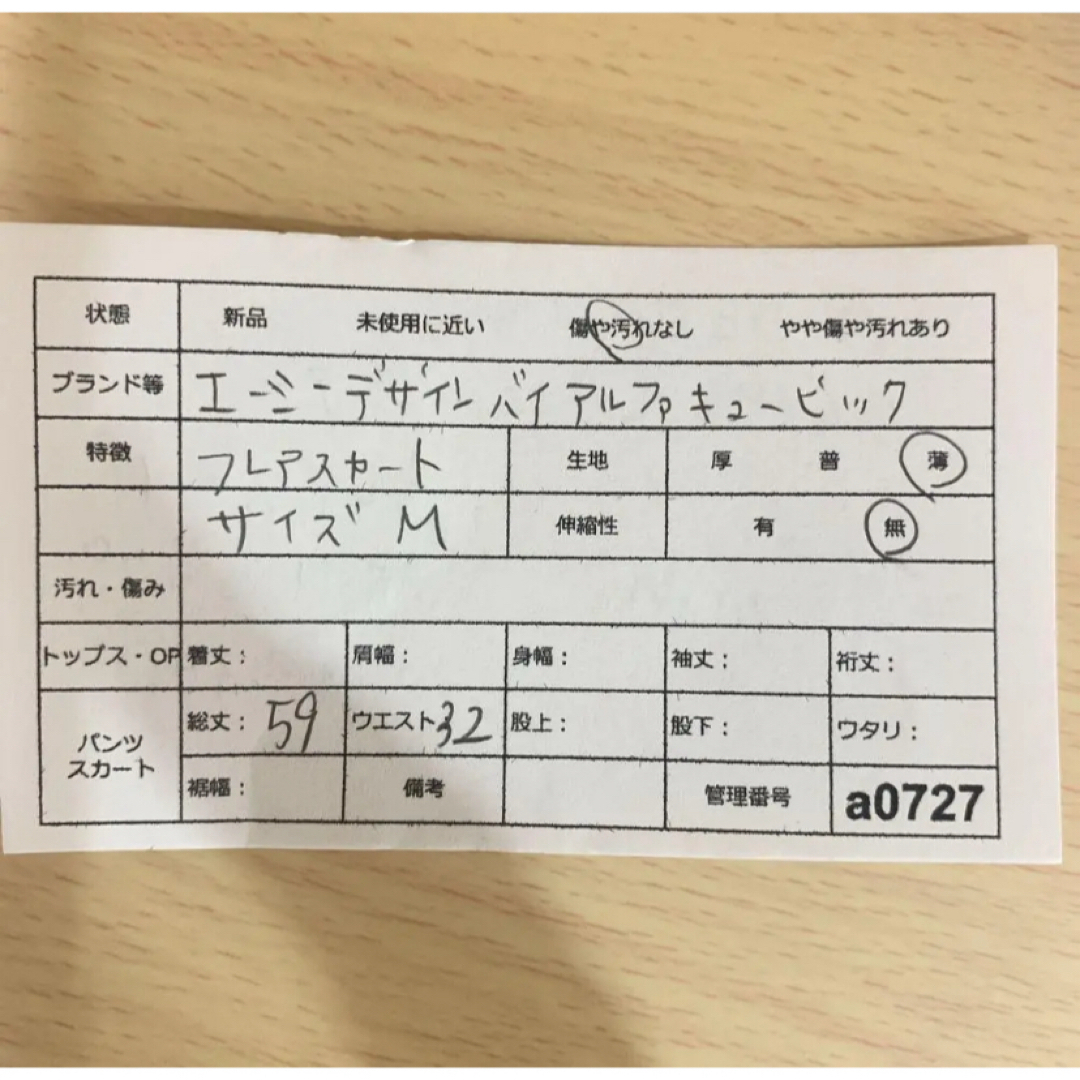 状態 新品 未使用に近い 傷や汚れなし やや傷や汚れあり
ブランド等 エーシーデザインバイアルファキュービック
特徴 フレアスカート 生地 厚 普 薄
サイズ M 伸縮性 有 無
汚れ・傷み
トップス・OP 着丈: 肩幅: 身幅: 袖丈: 裄丈:
パンツ スカート 総丈: 59 ウエスト 32 股上: 股下: ワタリ:
裾幅: 備考 管理番号 a0727